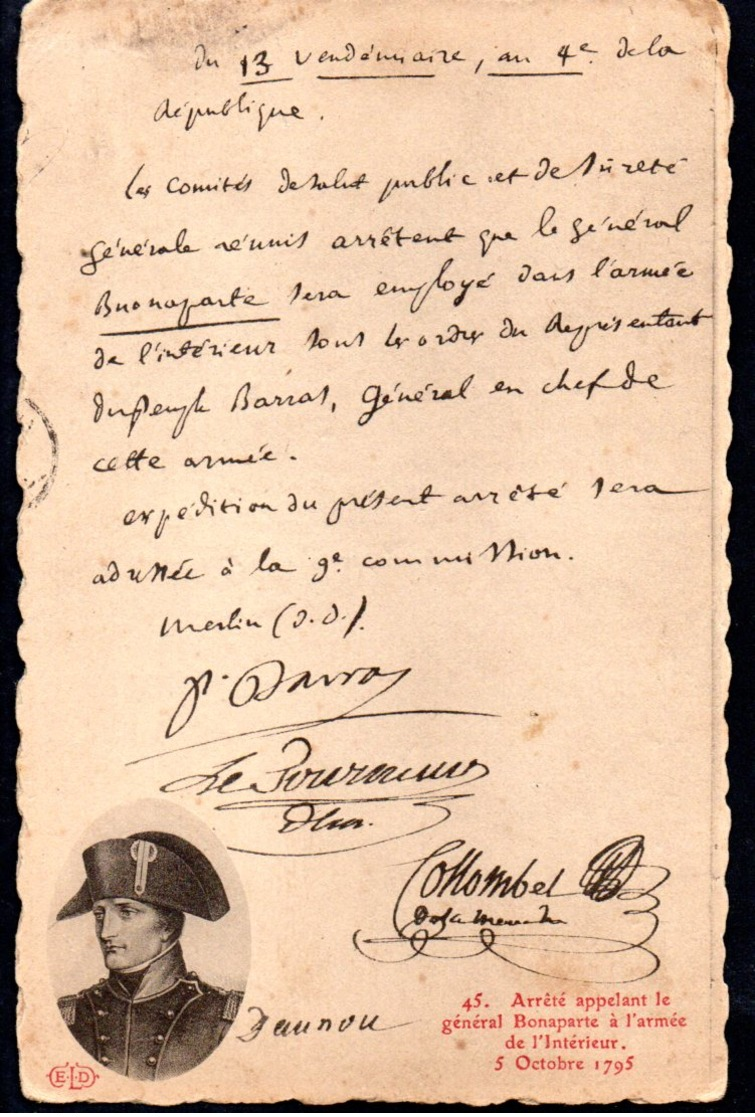 Du 13 Vendémiaire, an 4e. de la
République.
Les Comités de Salut public et de Sûreté
Générale réunis arrêtent que le général
Buonaparte sera employé dans l'armée
de l'intérieur sous les ordres du Représentant
du Peuple Barras, Général en chef de
cette armée.
expédition du présent arrêté sera
adressée à la 9e commission.
Merlin (d. d.).
P. Barras
Collombel
de la Meurthe
Daunou
45. Arrêté appelant le
général Bonaparte à l'armée
de l'Intérieur.
5 Octobre 1795
E.L.D